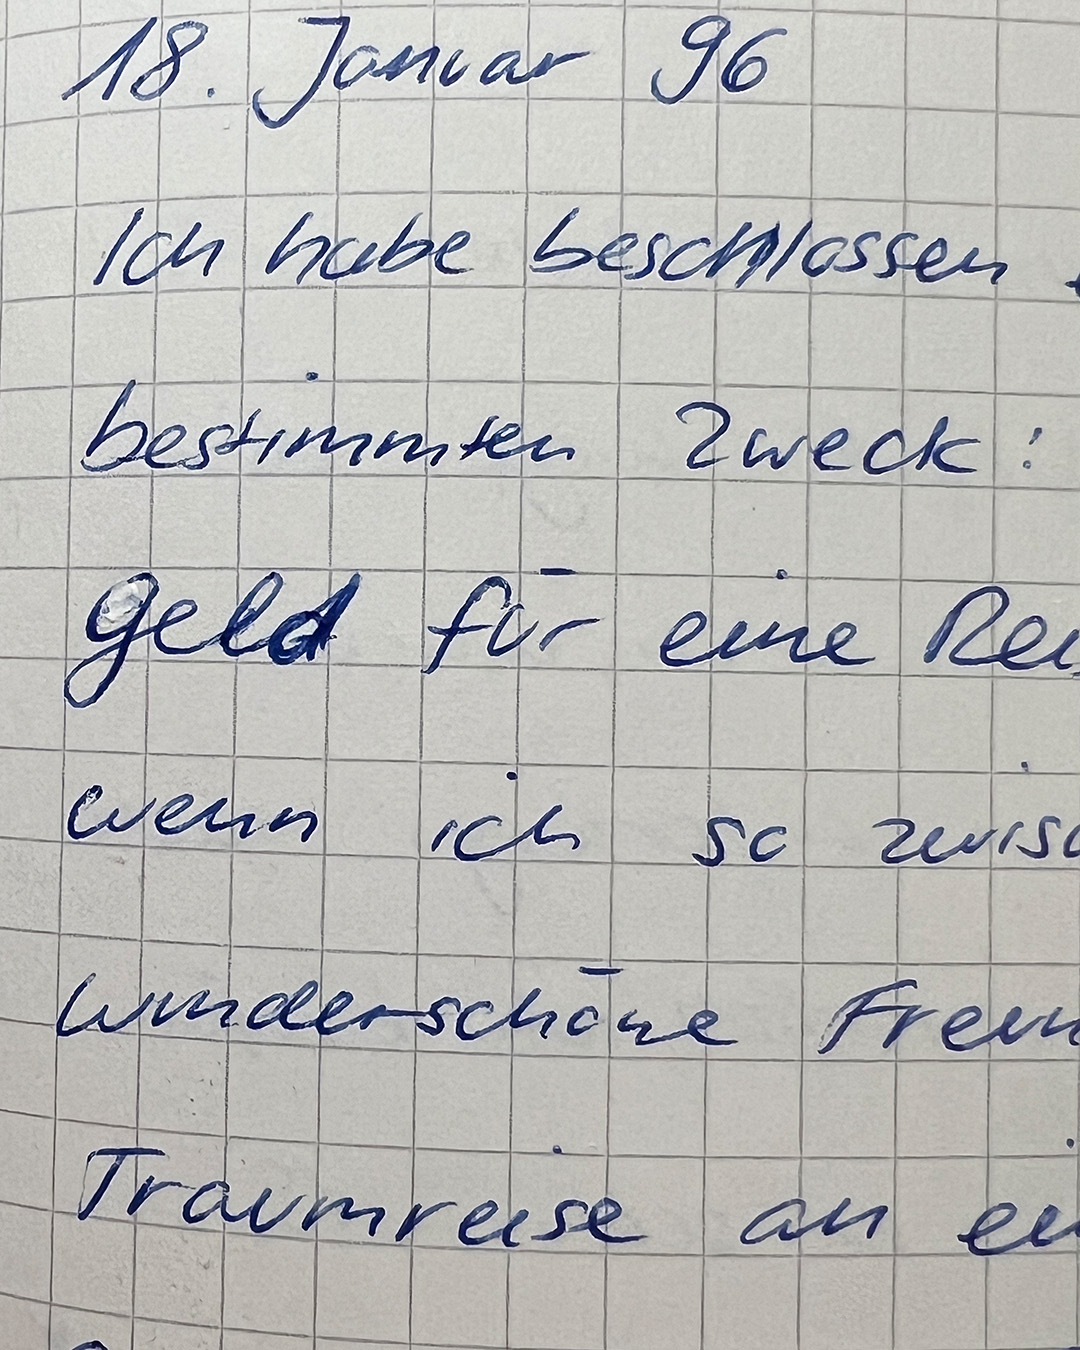 18. Januar 96
Ich habe beschlossen
bestimmten Zweck:
Geld für eine
wenn ich so
wunderschöne
Traumreise an